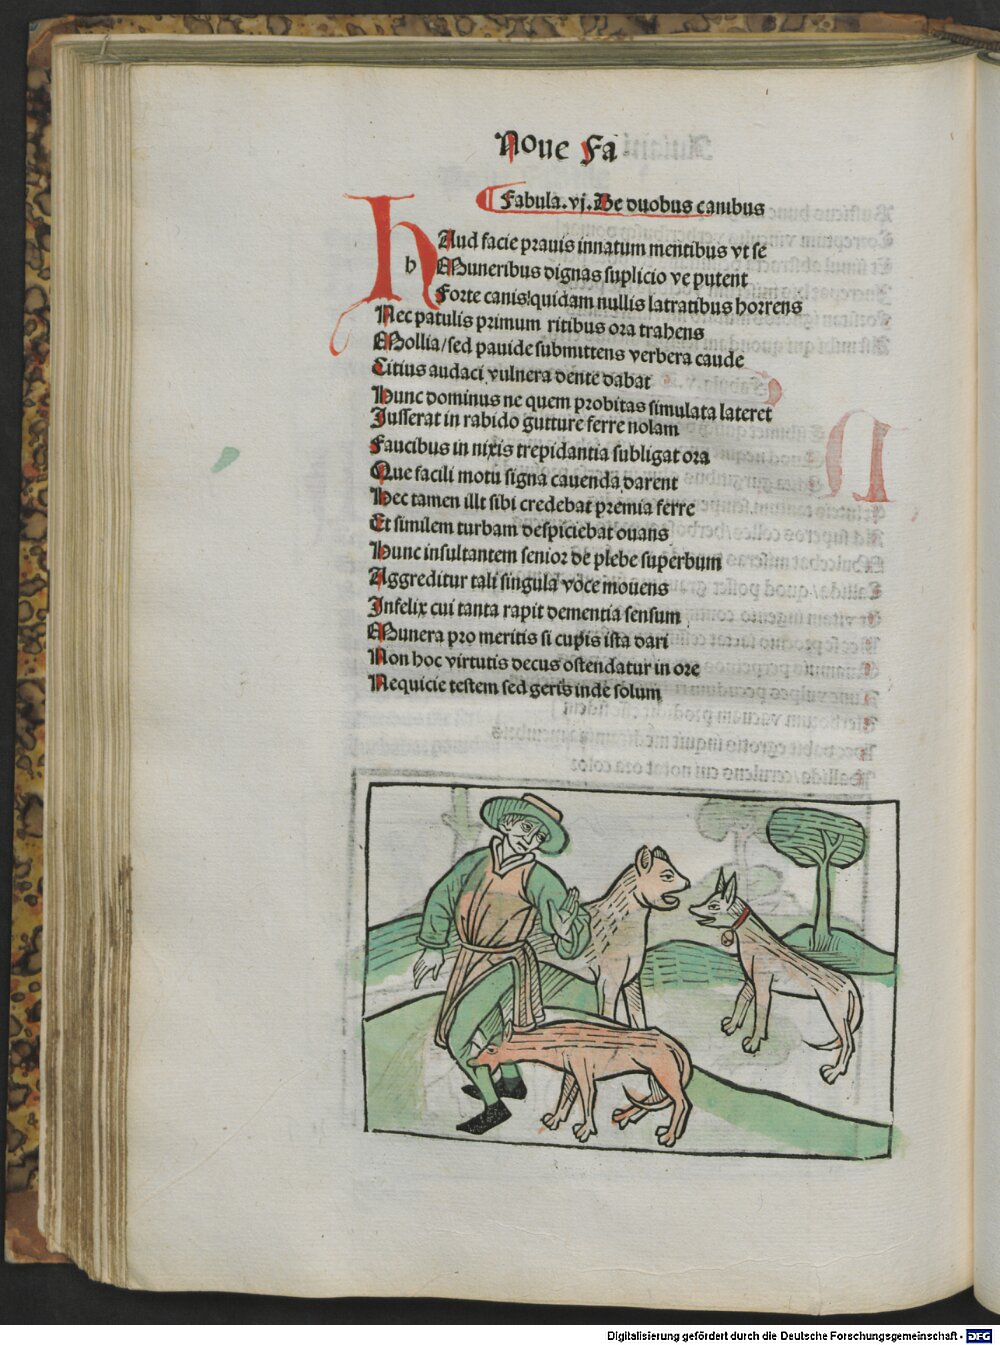 Noue Fa
Fabula.vj.De duobus canibus
HAud facie prauis innatum mentibus vt se
h Muneribus dignas suplicio ve putent
Forte canis quidam nullis latratibus horrens
Nec patulis primum ritibus ora trahens
Mollia/sed pauide submittens verbera caude
Citius audaci vulnera dente dabat
Hunc dominus ne quem probitas simulata lateret
Jusserat in rabido gutture ferre nolam
Faucibus in nixis trepidantia subligat ora
Que facili motu signa cauenda darent
Hec tamen illt sibi credebat premia ferre
Et similem turbam despiciebat ouans
Hunc insultantem senior de plebe superbum
Aggreditur tali singula voce mouens
Infelix cui tanta rapit dementia sensum
Munera pro meritis si cupis ista dari
Non hoc virtutis decus ostendatur in ore
Nequicie testem sed geris inde solum
Digitalisierung gefördert durch die Deutsche Forschungsgemeinschaft - DFG